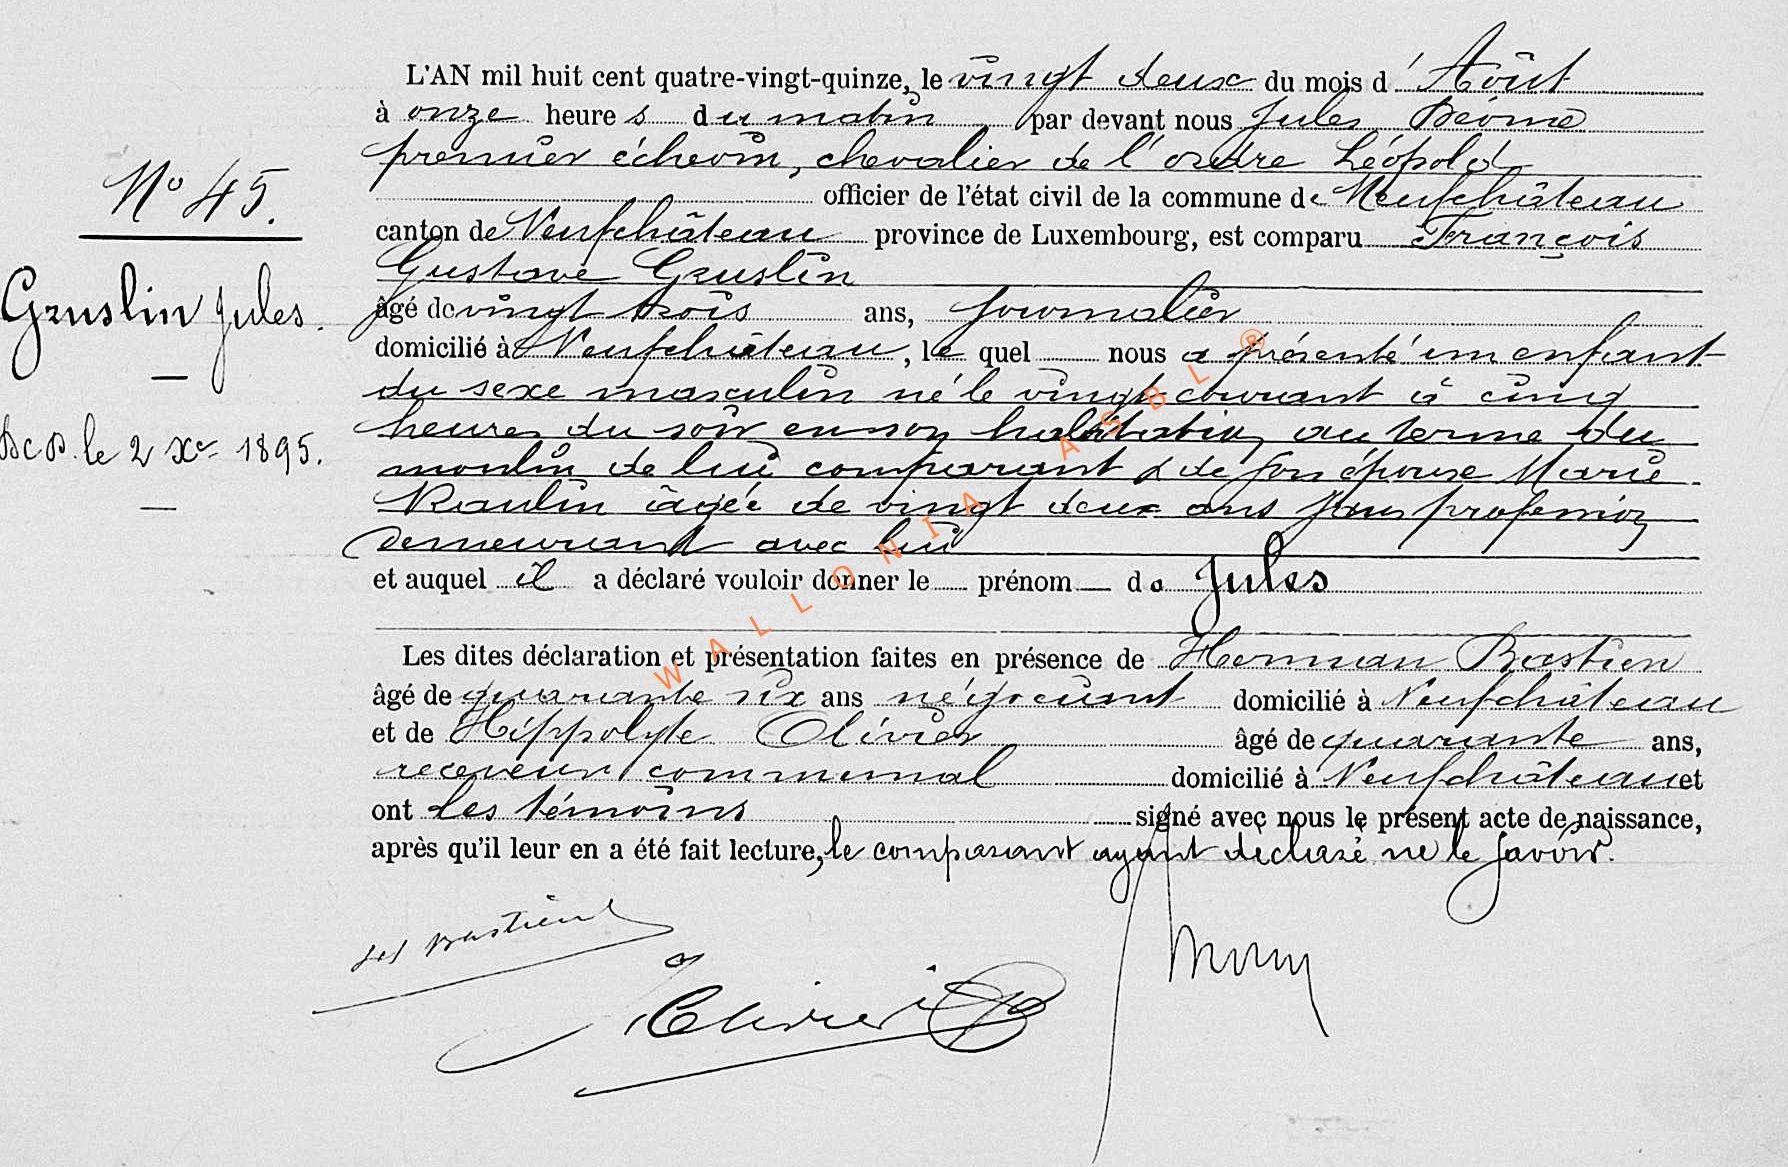 L'AN mil huit cent quatre-vingt-quinze, le vingt deux du mois d' Août
à onze heures du matin par devant nous Jules
premier échevin, chevalier de l'ordre Léopold
officier de l'état civil de la commune de Neufchâteau
N° 45.
canton de Neufchâteau province de Luxembourg, est comparu François
Gustave Gruslin
Gruslin Jules.
âgé de vingt trois ans, journalier
domicilié à Neufchâteau, le quel nous a présenté un enfant
du sexe masculin né le vingt courant à cinq
heures du soir en son habitation au terme du
Dcd. le 2 Xre 1895.
moulin de lui comparant & de son épouse Marie
Raulin âgée de vingt deux ans sans profession
demeurant avec lui
et auquel il a déclaré vouloir donner le prénom de Jules
Les dites déclaration et présentation faites en présence de Herman Bastien
âgé de quarante six ans négociant domicilié à Neufchâteau
et de Hippolyte Olivier âgé de quarante ans,
receveur communal domicilié à Neufchâteau et
ont les témoins signé avec nous le présent acte de naissance,
après qu'il leur en a été fait lecture, le comparant ayant déclaré ne le savoir.
Bastien
Olivier
WALLONIA ASBL ®